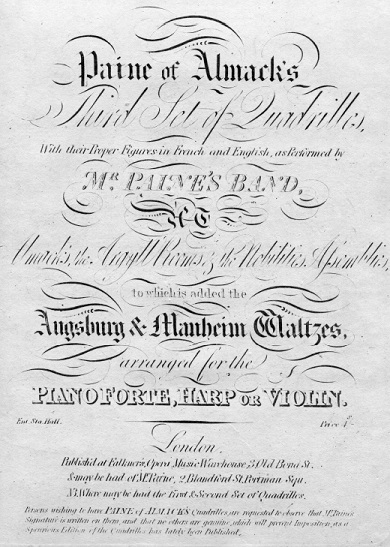 Paine of Almack's
Third Set of Quadrilles,
With their Proper Figures in French and English, as Performed by
Mr. PAINE'S BAND,
AT
Almack's, the Argyll Rooms, & the Nobilities Assemblies,
to which is added the
Augsburg & Manheim Waltzes,
arranged for the
PIANO FORTE, HARP OR VIOLIN.
Ent. Sta. Hall. Price 4s.
London.
Publish'd at Falkner's, Opera Music Warehouse, 3 Old Bond St.
& may be had of Mr. Paine, 2 Blandford St. Portman Squ.
Where may be had the First & Second Set of Quadrilles.
Persons wishing to have PAINE of ALMACK'S Quadrilles, are requested to observe that Mr. Paine's
Signature is written on them, and that no others are genuine, which will prevent Imposition, as a
Spurious Edition of the Quadrilles has lately been Published.